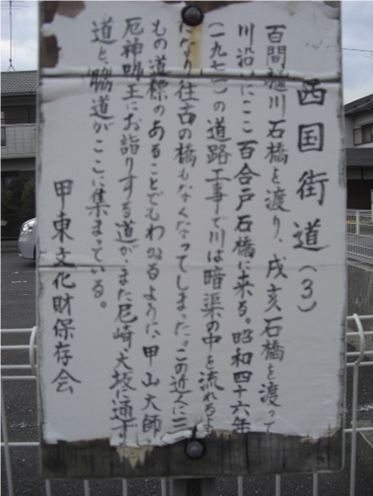 西国街道(3)
百間樋川石橋を渡り、戌亥石橋を渡って
川沿いにここ百合戸石橋に来る。昭和四十六年
(一九七一)の道路工事で川は暗渠の中を流れるよう
になり往古の橋もなくなってしまった。この近くに三
もの道標のあることでもわかるように、甲山大師
厄神明王にお詣りする道が、また尼崎、大坂に通ず
道と、脇道がここに集まっている。
甲東文化財保存会